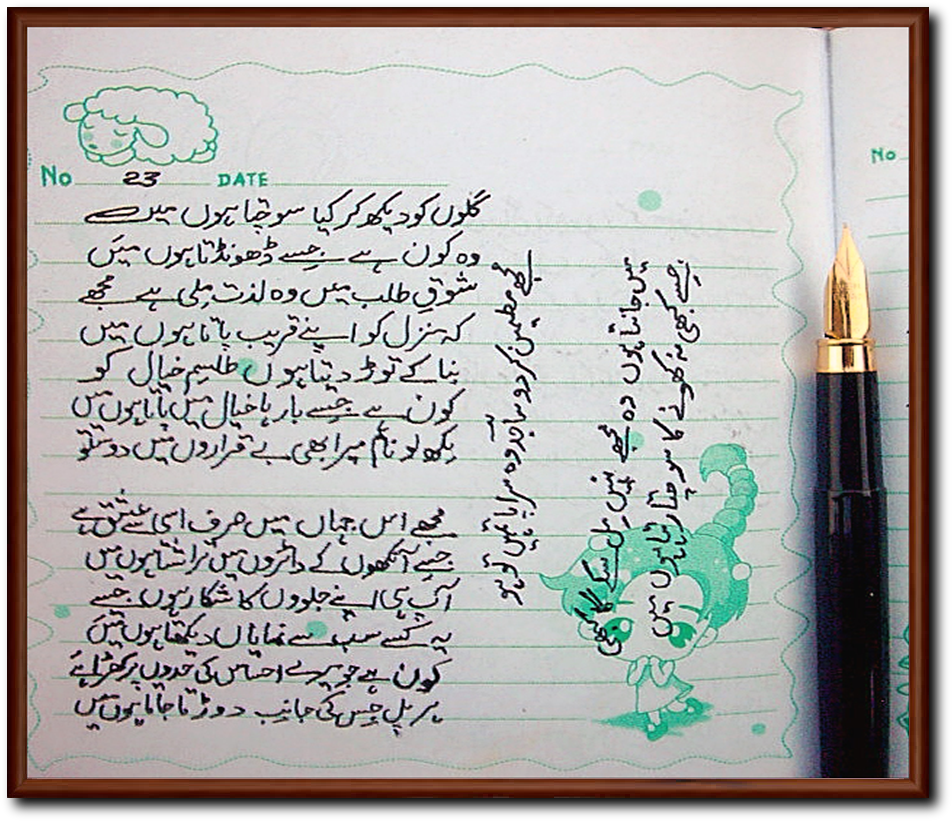 No 23 DATE
No
گلوں کو دیکھ کر کیا سوچتا ہوں میں
وہ کون ہے جسے ڈھونڈتا ہوں میں
شوقِ طلب میں وہ لذت ملی ہے مجھے
کہ منزل کو اپنے قریب پاتا ہوں میں
بنا کے توڑ دیتا ہوں طلسمِ خیال کو
کون ہے جسے بارہا خیال میں پاتا ہوں میں
لکھ لو نام میرا بھی بے قراروں میں دوستو
مجھے اس جہاں میں صرف اسی سے عشق ہے
جسے آنکھوں کے دائروں میں تراشتا ہوں میں
آپ ہی اپنے جلووں کا شکار ہوں جسے
یہ کسے سب سے نمایاں دیکھتا ہوں میں
کون ہے جو میرے احساس کی حدوں پر کھڑا ہے
ہر پل جس کی جانب دوڑتا جاتا ہوں میں
مجھے مطمئن کر دو ساجد وہ میرا تو ہو
میں جانتا ہوں وہ مجھے نہیں مل سکے گا کبھی
جسے کبھی نہ کھونے کا سوچتا رہتا ہوں میں